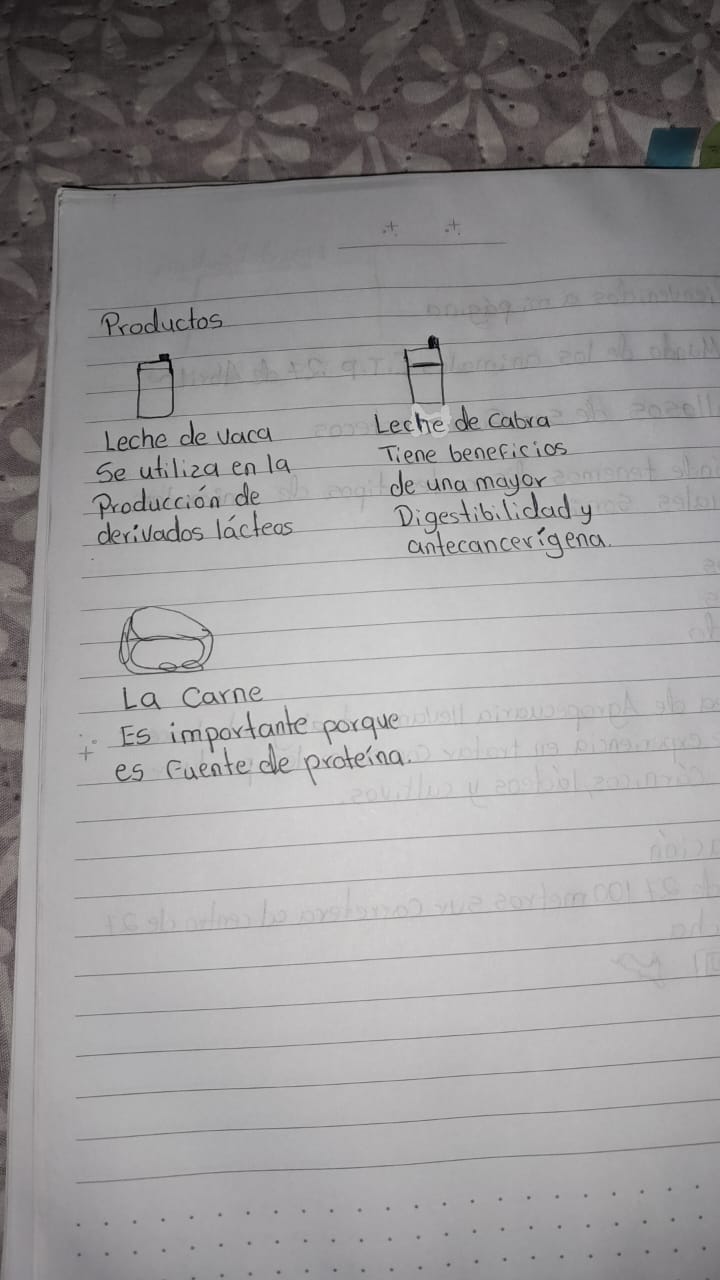 Productos
Leche de vaca
Se utiliza en la
Producción de
derivados lácteos
Leche de Cabra
Tiene beneficios
de una mayor
Digestibilidad y
antecancerígena.
La Carne
Es importante porque
es Fuente de proteína.